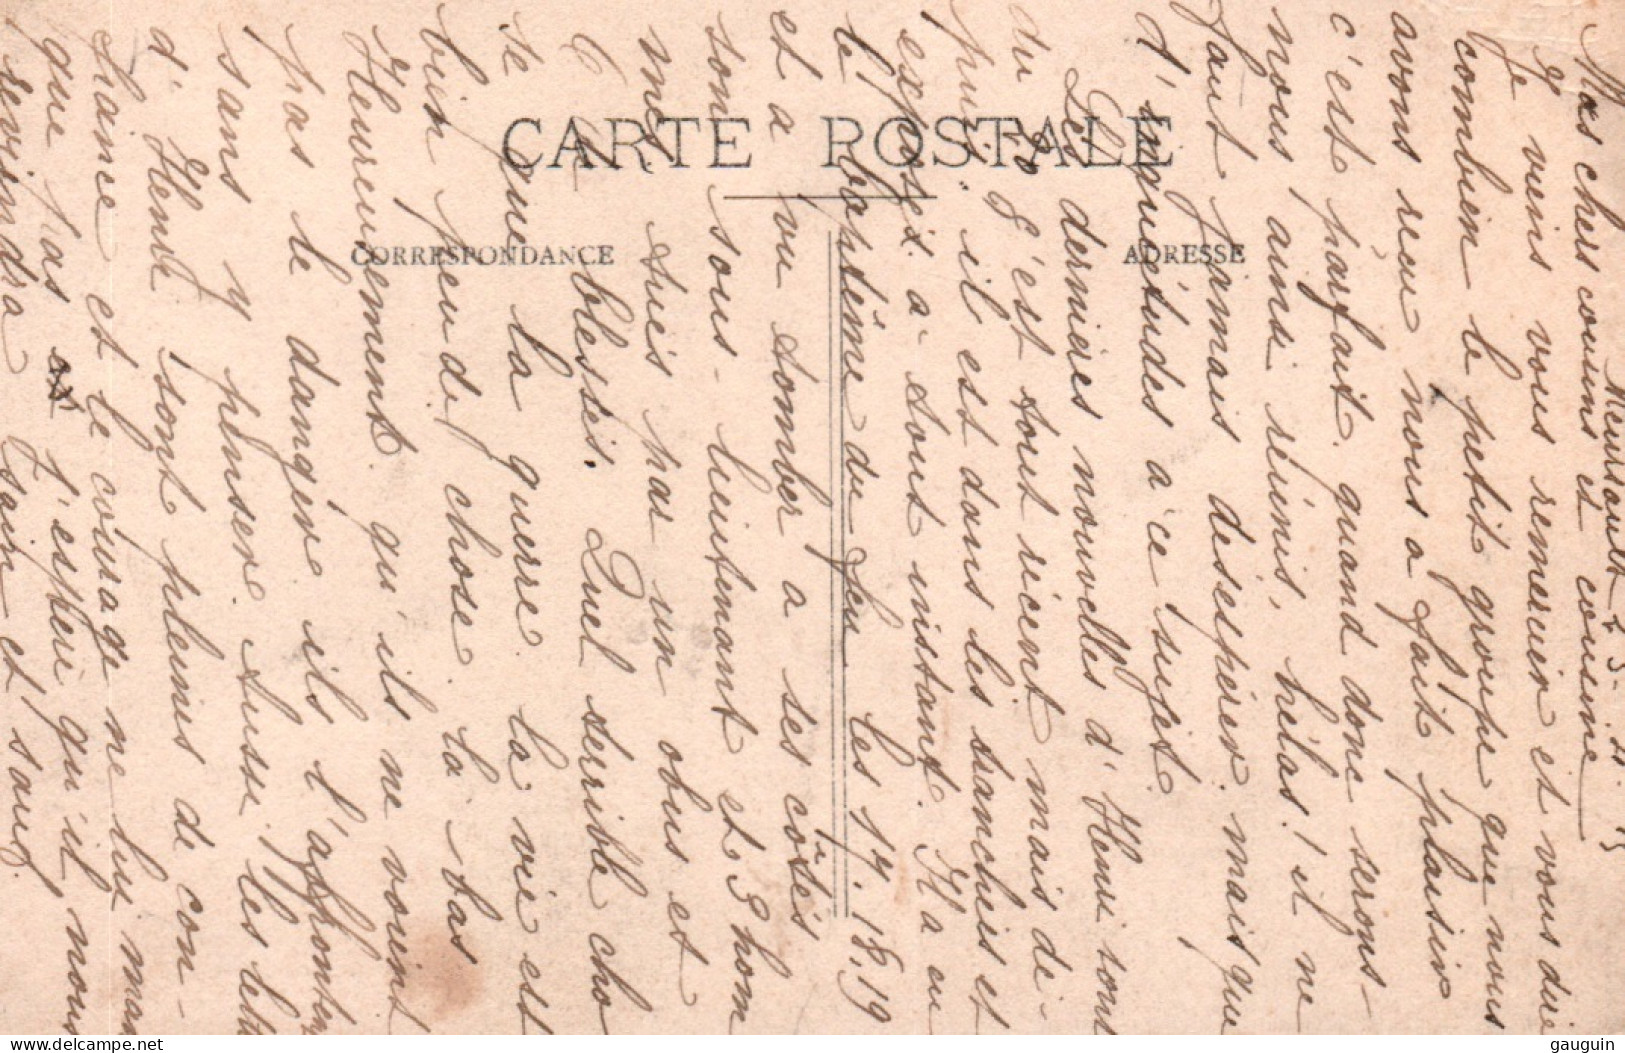 Meursault le 3. 11. 15
Mes chers cousins et cousine
Je viens vous remercier et vous dire
combien le petit groupe que nous
avons reçu nous a fait plaisir
c'est parfait. quand donc serons-
nous ainsi réunis, hélas! il ne
faut jamais désespérer mais que
d'inquiétudes à ce sujet.
Les dernières nouvelles d'Henri sont
du 20 c'est tout récent mais de-
puis il est dans les tranchées et
exposé à tout instant. Il a eu
le baptême du feu les 17. 18. 19
et a vu tomber à ses côtés un
sous-lieutenant et 3 hom
mes tués par un obus et
6 blessés. Quel terrible cho
se que la guerre. la vie est
bien peu de chose là-bas
Heureusement qu'ils ne voient
pas le danger ils l'affrontent
sans y penser. Aussi les lettres
d'Henri sont pleines de con-
fiance et le courage ne lui man
que pas et j'espère qu'il nous
reviendra sain et sauf.
CARTE POSTALE
CORRESPONDANCE
ADRESSE
delcampe.net
gauguin